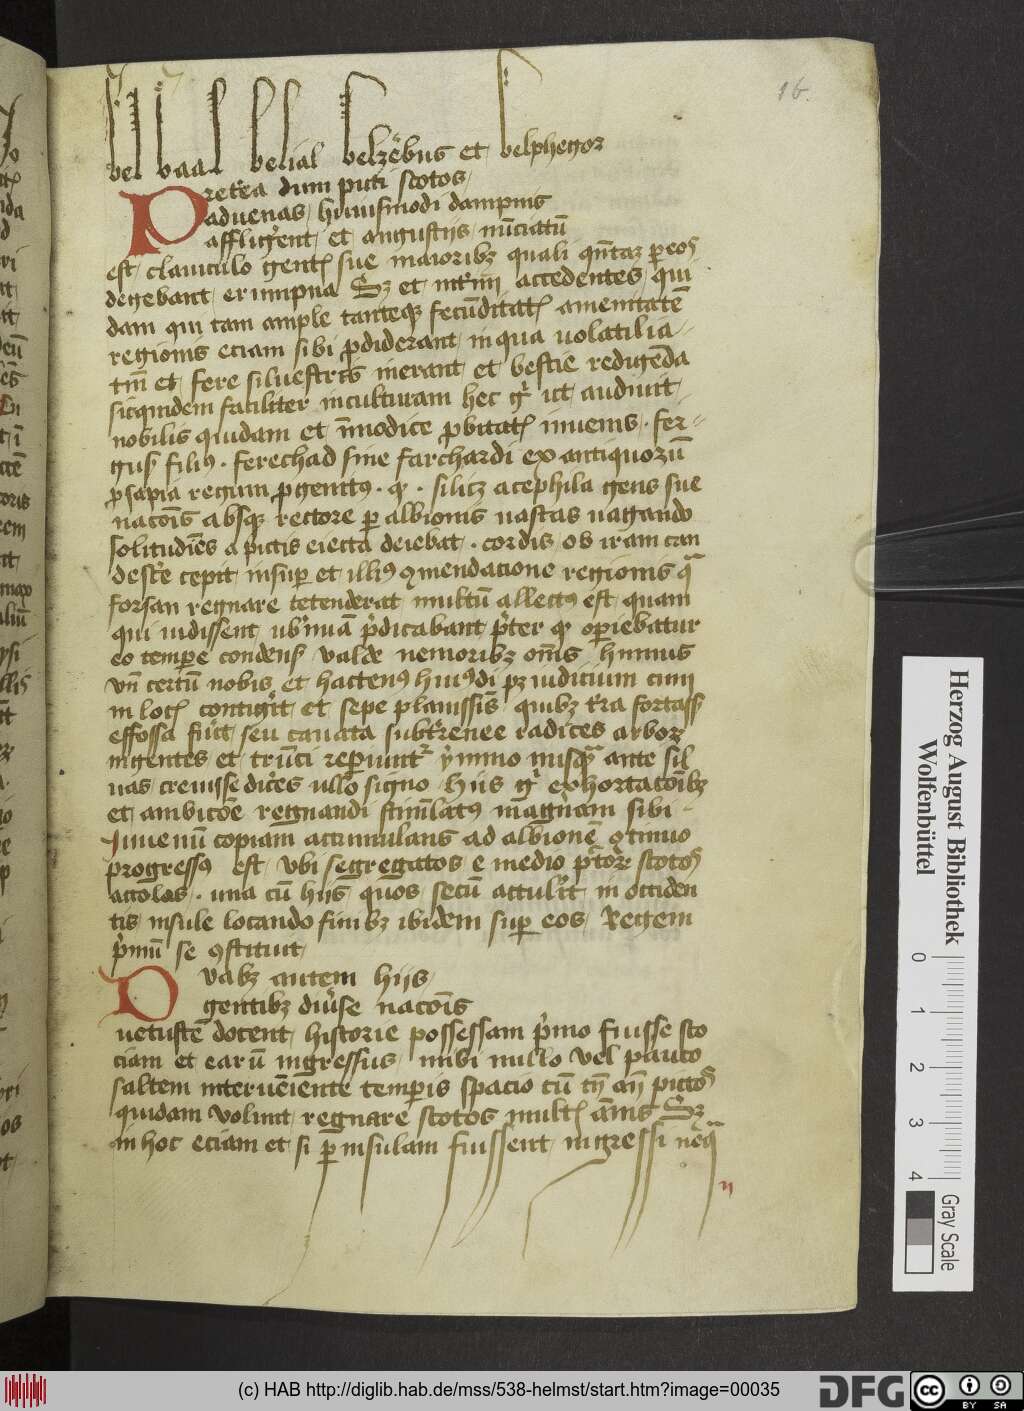 16.
bel baal belial belzebus et belphegor
Pretea dum picti scotos
aduenas huiusmodi dampnis
affliger̄ent et angustijs nūciatū
est clanculo gent sue maioribꝫ quali qn̄taꝫ ꝑ eos
degebant erumpna Sꝫ et accedentes qui
dam qui tam ample tanteqꝫ fecūditat amenitatē
regionis eciam sibi ꝓdiderant in qua uolatilia
tm̄ et fere siluestris inerant et bestie redigēda
siquidem faciliter in culturam hec gͥ ut audiuit
nobilis quidam et īmodice ꝓbitat iuuenis · fer-
gus filiꝰ · ferechad siue farchardi ex antiquorū
ꝓsapia regum ꝓgenitꝰ · ꝙ · silicꝫ acephila gens sue
nacōis absqꝫ rectore ꝑ albionis uastas uagando
solitudīes a pictis eiecta deiebat · cordis ob iram can
dest̄e cepit insuꝑ et illiꝰ ꝯmendacione regionis qͣ
forsan regnare tetenderat multū allectꝰ est quam
qui uidissent ub̓rimā p̄dicabant p̄ter ꝙ oꝑiebatur
eo tempore condens valde nemoribꝫ om̄is humus
vn̄ certū nobis et hactenꝰ huiꝰdi pꝫ iudicium cum
in loc contigit et sepe planissīs quibꝫ t̓ra fortass
effossa fu̓it seu cauata subt̓renee radices arboꝝ
ingentes et trūci repiuntᷣ ymmo nusqͣ ante sil
uas creuisse dic̄es ullo signo hijs gͥ exhortacōibꝫ
et ambicōe regnandi stimulatꝰ magnam sibi -
Iuuenū copiam accumulans ad albionē ꝯtinuo
progressꝰ est vbi segregatos e medio pictoꝝ scotos
accolas · una cū hijs quos secū attul̓it in occiden
tis insule locando finibꝫ ibidem suꝑ eos Regem
p̓mū se ꝯstituit
Duabꝫ autem hijs
gentibꝫ diu̓se nacōis
uetustē docent historie possessam p̓mo fuisse sco
ciam et earū ingressus mibi nullo vel pauco
saltem interuēiente temꝑis spacio cū tn̄ an̄ pictos
quidam volunt regnare scotos mult ānis Sꝫ
in hoc eciam et si ꝑ insulam fuissent ingressi neqͣ
Herzog August Bibliothek
Wolfenbüttel
0 1 2 3 4
Gray Scale
(c) HAB http://diglib.hab.de/mss/538-helmst/start.htm?image=00035
DFG
cc BY SA